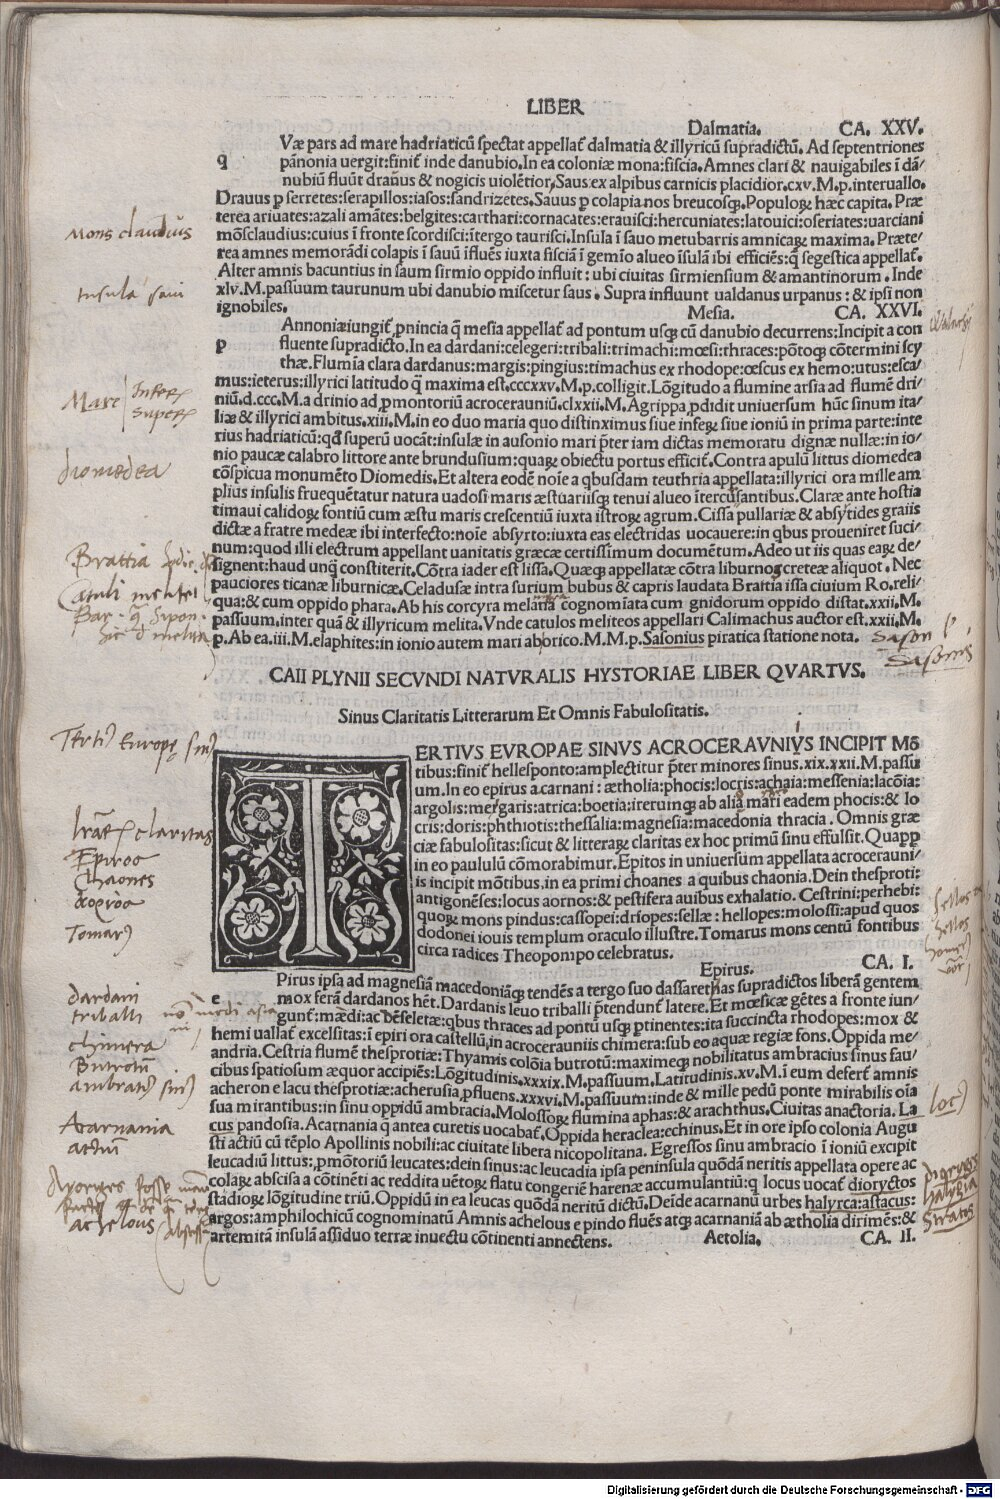 LIBER
Dalmatia. CA. XXV.
Væ pars ad mare hadriaticū spectat appellat᷑ dalmatia & illyricū supradictū. Ad septentriones
q pānonia uergit: finit᷑ inde danubio. In ea coloniæ mona: siscia. Amnes clari & nauigabiles ī dā/
nubiū fluūt drauus & nogicis uiolētior, Saus ex alpibus carnicis placidior. cxv. M. p. interuallo.
Drauus ꝑ serretes: serapillos: iasos: sandrizetes. Sauus ꝑ colapianos breucosq̨. Populoꝝ hæc capita. Præ
terea ariuates: azali amātes: belgites: carthari: cornacates: erauisci: hercuniates: latouici: oseriates: uarciani
mōsclaudius: cuius ī fronte scordisci: ītergo taurisci. Insula ī sauo metubarris amnicaꝝ maxima. Præte/
rea amnes memorādi colapis ī sauū īfluēs iuxta fisciā ī gemīo alueo īsulā ibi efficiēs: q̄ segestica appellat᷑.
Alter amnis bacuntius in saum sirmio oppido influit: ubi ciuitas sirmiensium & amantinorum. Inde
xlv. M. passuum taurunum ubi danubio miscetur saus. Supra influunt ualdanus urpanus: & ipsi non
ignobiles. Mesia. CA. XXVI.
Annoniæiungit᷑ ꝓuincia q̄ mesia appellat᷑ ad pontum usq̨ cū danubio decurrens: Incipit a con
p fluente supradicto. In ea dardani: celegeri: tribali: trimachi: mœsi: thraces: pōtoq̨ cōtermini scy
thæ. Flumīa clara dardanus: margis: pingius: timachus ex rhodope: œscus ex hemo: utus: esca/
mus: ieterus: illyrici latitudo q̄ maxima est. cccxxv. M. p. colligit. Lōgitudo a flumine arsia ad flumē dri/
niū. d. ccc. M. a drinio ad ꝓmontoriū acrocerauniū. clxxii. M. Agrippa ꝓdidit uniuersum hūc sinum ita/
liæ & illyrici ambitus. xiii. M. in eo duo maria quo distinximus siue inferꝝ siue ioniū in prima parte: inte
rius hadriaticū: qd̄ superū uocāt: insulæ in ausonio mari p̄ter iam dictas memoratu dignæ nullæ: in io/
nio paucæ calabro littore ante brundusium: quaꝝ obiectu portus efficit᷑. Contra apulū littus diomedea
cōspicua monumēto Diomedis. Et altera eodē noīe a qbusdam teuthria appellata: illyrici ora mille am
plius insulis fruequētatur natura uadosi maris æstūariisq̨ tenui alueo ītercūsantibus. Claræ ante hostia
timaui calidoꝝ fontiū cum æstu maris crescentiū iuxta istroꝝ agrum. Cissa pullariæ & absytides graiis
dictæ a fratre medeæ ibi interfecto: noīe absyrto: iuxta eas electridas uocauere: in qbus proueniret suci/
num: quod illi electrum appellant uanitatis græcæ certissimum documētum. Adeo ut iis quas eaꝝ de/
signent: haud unq̄ constiterit. Cōtra iader est lissa. Quæq̨ appellatæ cōtra liburnos creteæ aliquot. Nec
pauciores ticanæ liburnicæ. Celadusæ intra surium bubus & capris laudata Braitia issa ciuium Ro. reli/
qua: & cum oppido phara. Ab his corcyra melania cognomīata cum gnidorum oppido distat. xxii. M.
passuum. inter quā & illyricum melita. Vnde catulos meliteos appellari Calimachus auctor est. xxii. M.
p. Ab ea. iii. M. elaphites: in ionio autem mari aborico. M. M. p. Sasonius piratica statione nota.
CAII PLYNII SECVNDI NATVRALIS HYSTORIAE LIBER QVARTVS.
Sinus Claritatis Litterarum Et Omnis Fabulositatis.
TERTIVS EVROPAE SINVS ACROCERAVNIVS INCIPIT Mō
tibus: finit᷑ hellesponto: amplectitur p̄ter minores sinus. xix. xxii. M. passu
um. In eo epirus a. carnani: ætholia: phocis: locris: achaia: messenia: lacōia:
argolis: megaris: atrica: boetia: iteruinq̨ ab aliā mari eadem phocis: & lo
cris: doris: phthiotis: thessalia: magnesia: macedonia thracia. Omnis græ
ciæ fabulositas: sicut & litteraꝝ claritas ex hoc primū sinu effulsit. Quapp
in eo paululū cōmorabimur. Epitos in uniuersum appellata acrocerauni/
is incipit mōtibus. in ea primi choanes a quibus chaonia. Dein thesproti:
antigonēses: locus aornos: & pestifera auibus exhalatio. Cestrini: perhebi:
quoꝝ mons pindus: cassopei: driopes: sellæ: hellopes: molossi: apud quos
dodonei iouis templum oraculo illustre. Tomarus mons centū fontibus
circa radices Theopompo celebratus.
Epirus. CA. I.
Pirus ipsa ad magnesiā macedoniāq̨ tendēs a tergo suo dassarethas supradictos liberā gentem
e mox ferā dardanos hēt. Dardanis leuo triballi p̄tendunt᷑ latere. Et mœsicæ gētes a fronte iun/
gunt᷑: mædi: ac dēseletæ: qbus thraces ad pontū usq̨ ptinentes: ita succincta rhodopes: mox &
hemi uallat᷑ excelsitas: ī epiri ora castellū, in acrocerauniis chimera: sub eo aquæ regiæ fons. Oppida me/
andria. Cestria flumē thesprotiæ: Thyamis colōia butrotū: maximeq̨ nobilitatus ambracius sinus fau/
cibus spatiosum æquor accipiēs: Lōgitudinis. xxxix. M. passuum. Latitudinis. xv. M. ī eum defert᷑ amnis
acheron e lacu thesprotiæ: acherusia ꝓfluens. xxxvi. M. passuum: inde & mille pedū ponte mirabilis oīa
sua mirantibus: in sinu oppidū ambracia. Molossoꝝ flumina aphas: & arachthus. Ciuitas anactoria. La
cus pandosia. Acarnania q̄ antea curetis uocabat᷑. Oppida heraclea: echinus. Et in ore ipso colonia Augu
sti actiū cū tēplo Apollinis nobili: ac ciuitate libera nicopolitana. Egressos sinu ambracio ī ioniū excipit
leucadiū littus:, ꝓmōtoriū leucates: dein sinus: ac leucadia ipsa peninsula quōdā neritis appellata opere ac
colaꝝ abscisa a cōtinēti ac reddita uētoꝝ flatu congeriē harenæ accumulantiū: q̨ locus uocat᷑ dioryctos
stadioꝝ lōgitudine triū. Oppidū in ea leucas quōdā neritū dictū. Deīde acarnanū urbes halyrca: astacus:
argos: amphilochicū cognominatū Amnis achelous e pindo fluēs atq̨ acarnaniā ab ætholia dirimēs: &
artemitā insulā assiduo terræ inuectu cōtinenti annectens. Aetolia. CA. II.
Mons claudius
Insula saui
Mare Inferꝝ
Superꝝ
diomedea
Brattia
Catuli melitei
lr̄aꝝ claritas
Epiros
Chaones
Tomarꝯ
dardani
triballi
chimera
Butrotū
Acarnania
actiū
achelous
Sason
Sasonis
sellos
hellos
locꝯ
Dioryctos
Stratos
Digitalisierung gefördert durch die Deutsche Forschungsgemeinschaft - DFG